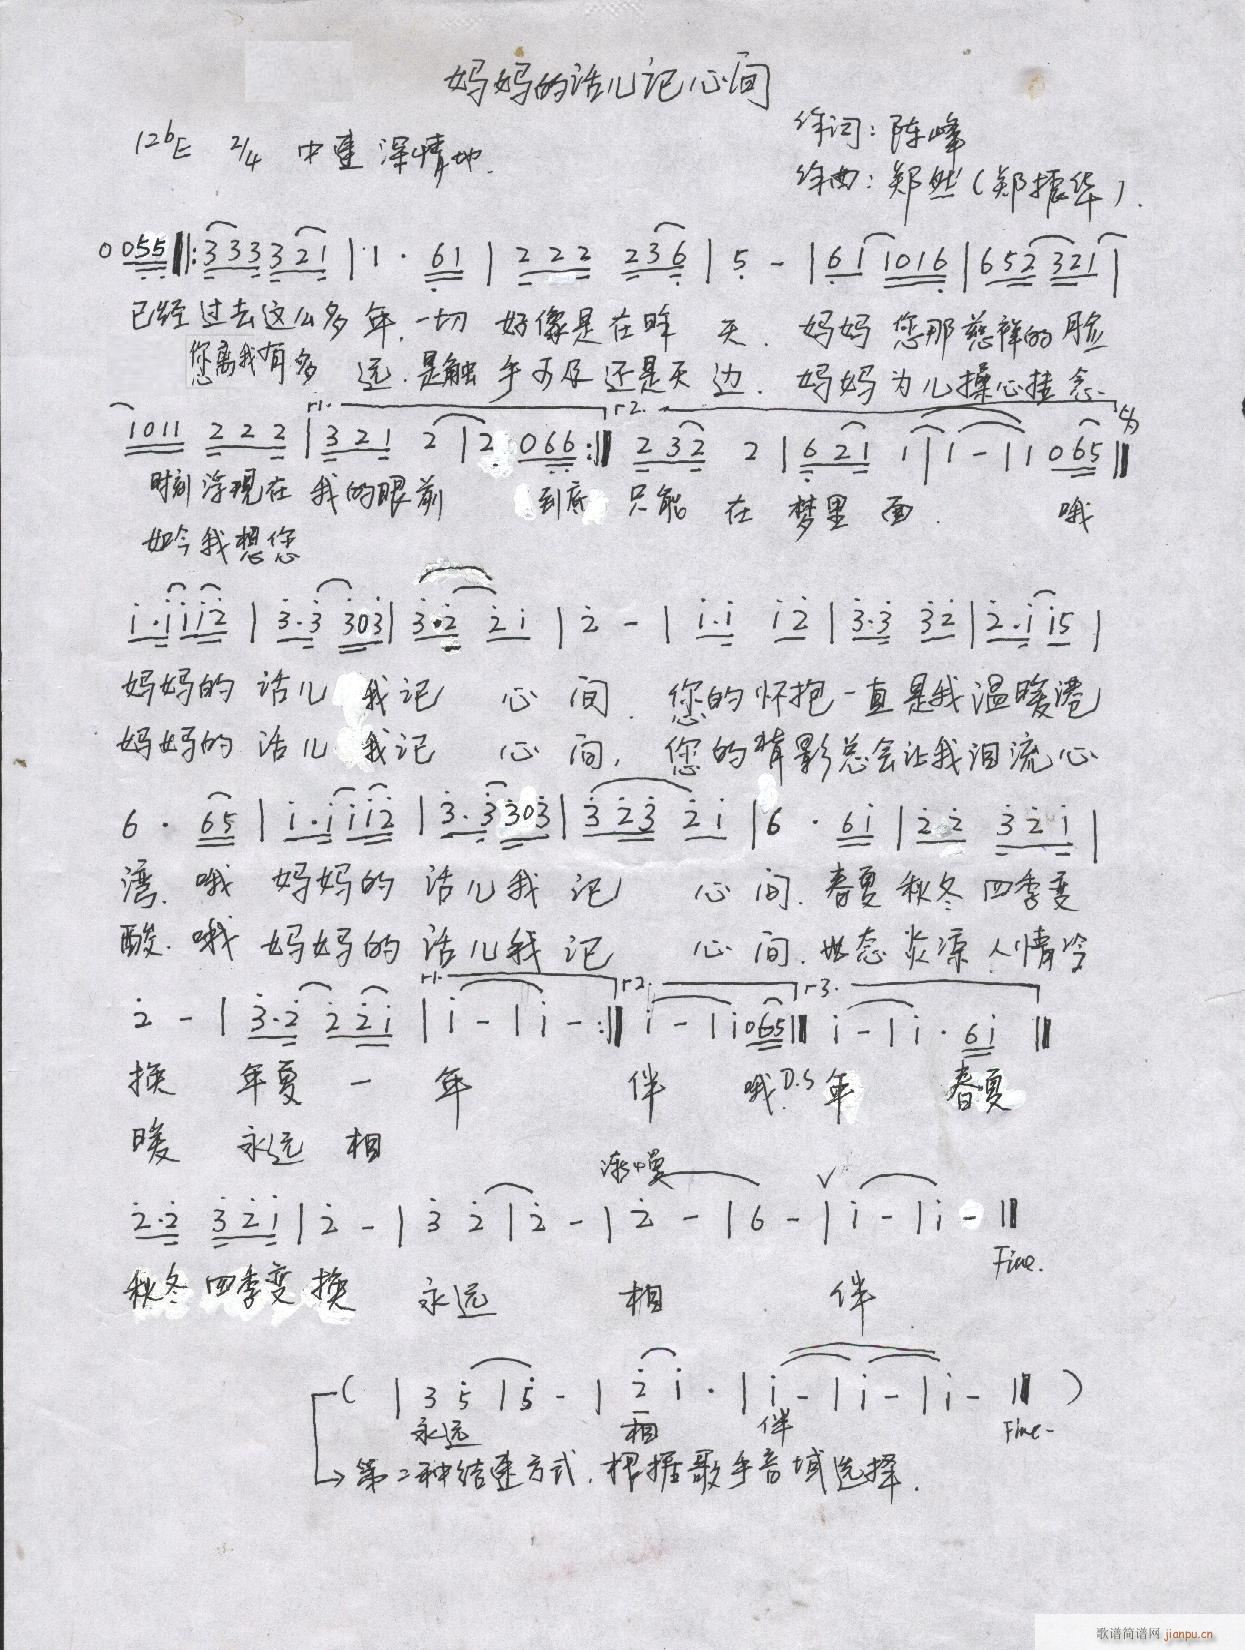 妈妈的话儿记心间
作词：陈峰
1=bE 2/4 中速 深情地.
作曲：郑然（郑振华）.
0 055 ‖: 333 321 | 1 · 61 | 222 236 | 5 - | 61 1016 | 652 321 |
已经过去这么多年.一切 好像是在昨 天. 妈妈 您那慈祥的脸
您离我有多 远.是触手可及还是天边. 妈妈为儿操心挂念.
1011 222 | 321 2 | 2 066 :‖ 232 2 | 621 1 | 1 - | 1 065 ‖
时刻浮现在 我的眼前 到底 只能 在 梦里面. 哦
如今我想您
i·iii2 | 3·3 303 | 3·2 2i | 2 - | i·i i2 | 3·3 32 | 2·i i5 |
妈妈的 话儿 我记 心 间. 您的怀抱一直是我温暖港
妈妈的 话儿 我记 心 间, 您的背影总会让我泪流心
6 · 65 | i·iii2 | 3·3 303 | 323 2i | 6 · 6i | 2·2 32i |
湾.哦 妈妈的 话儿我 记 心 间.春夏秋冬四季变
酸.哦 妈妈的 话儿我 记 心 间.世态炎凉人情冷
2 - | 3·2 22i | i - | i - :‖ i - | i 065 ‖ i - | i · 6i ‖
换 年夏 一 年 伴 哦 D.S 年 春夏
暖 永远 相
渐慢
2·2 32i | 2 - | 3 2 | 2 - | 2 - | 6 - | i - | i - ‖
Fine.
秋冬 四季变换 永远 相 伴
( | 3 5 | 5 - | 2 i · | i - | i - | i - ‖ )
永远 相 伴 Fine.
第二种结束方式.根据歌手音域选择.
歌谱简谱网 jianpu.cn